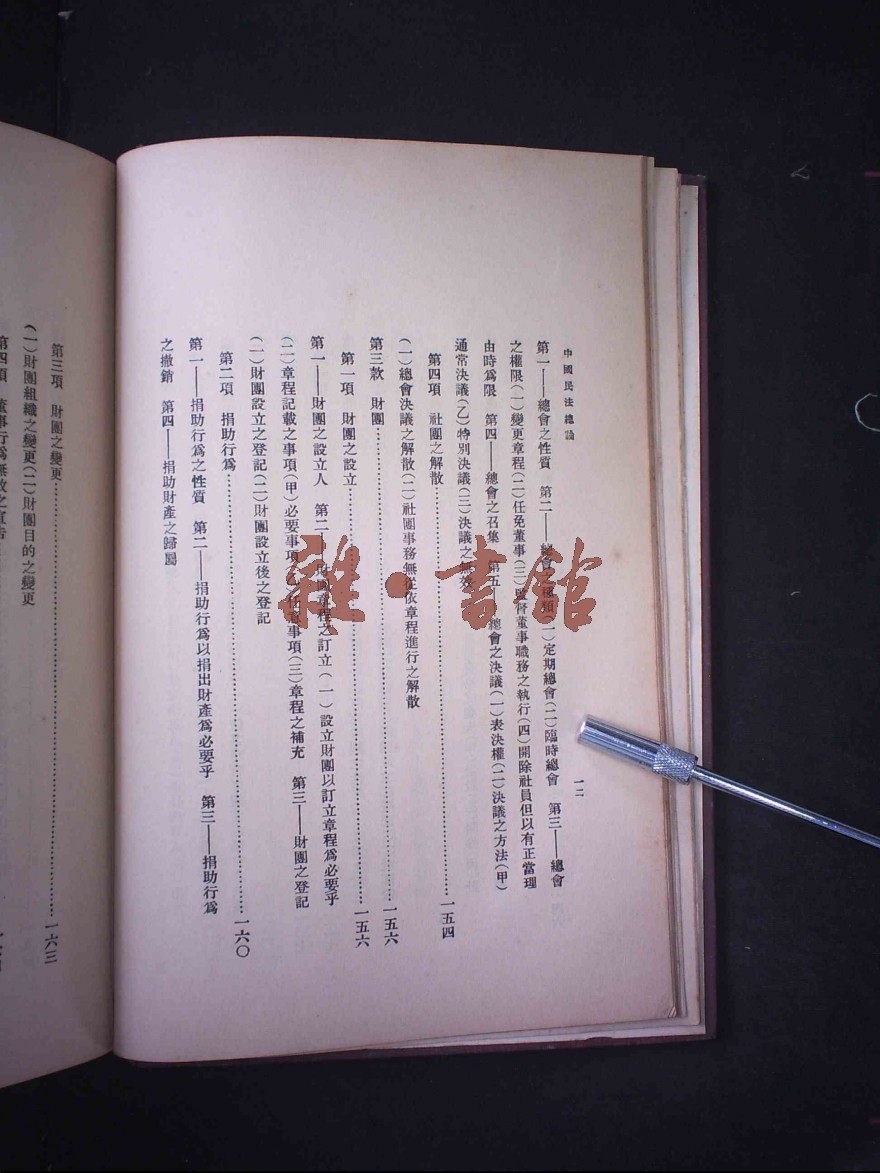 中國民法總論
一二
第一——總會之性質　第二——總會之種類(一)定期總會(二)臨時總會　第三——總會
之權限(一)變更章程(二)任免董事(三)監督董事職務之執行(四)開除社員但以有正當理
由時爲限　第四——總會之召集　第五——總會之決議(一)表決權(二)決議之方法(甲)
通常決議(乙)特別決議(三)決議之無效
第四項　社團之解散……一五四
(一)總會決議之解散(二)社團事務無從依章程進行之解散
第三款　財團……一五六
第一項　財團之設立……一五六
第一——財團之設立人　第二——財團章程之訂立(一)設立財團以訂立章程爲必要乎
(二)章程記載之事項(甲)必要事項(乙)任意事項(三)章程之補充　第三——財團之登記
(一)財團設立之登記(二)財團設立後之登記
第二項　捐助行爲……一六〇
第一——捐助行爲之性質　第二——捐助行爲以捐出財產爲必要乎　第三——捐助行爲
之撤銷　第四——捐助財產之歸屬
第三項　財團之變更……一六三
(一)財團組織之變更(二)財團目的之變更
第四項　董事行爲無效之宣告
雜·書館